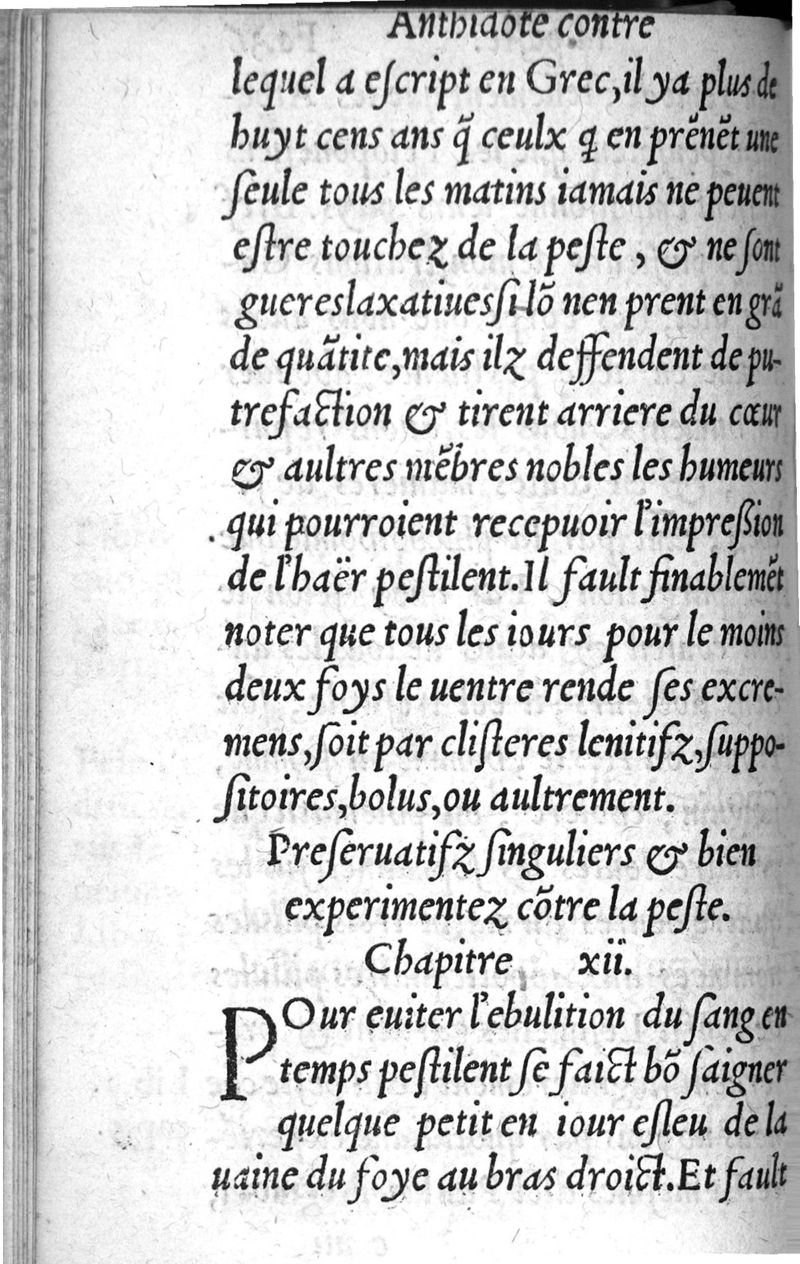 Anthidote contre
lequel a eſcript en Grec,il ya plus de
huyt cens ans q̃ ceulx q̃ en prẽnẽt une
ſeule tous les matins iamais ne peuent
eſtre touchez de la peſte , & ne ſont
gueres laxatiues ſi lõ nen prent en grã
de quãtite,mais ilz deffendent de pu-
trefaction & tirent arriere du cœur
& aultres mẽbres nobles les humeurs
qui pourroient recepuoir l'impreſsion
de l'haër peſtilent.Il fault finablemẽt
noter que tous les iours pour le moins
deux foys le uentre rende ſes excre-
mens,ſoit par cliſteres lenitifz,ſuppo-
ſitoires,bolus,ou aultrement.
Preſeruatifz ſinguliers & bien
experimentez cõtre la peſte.
Chapitre xii.
POur euiter l'ebulition du ſang en
temps peſtilent ſe faict bõ ſaigner
quelque petit en iour eſleu de la
uaine du foye au bras droict.Et fault